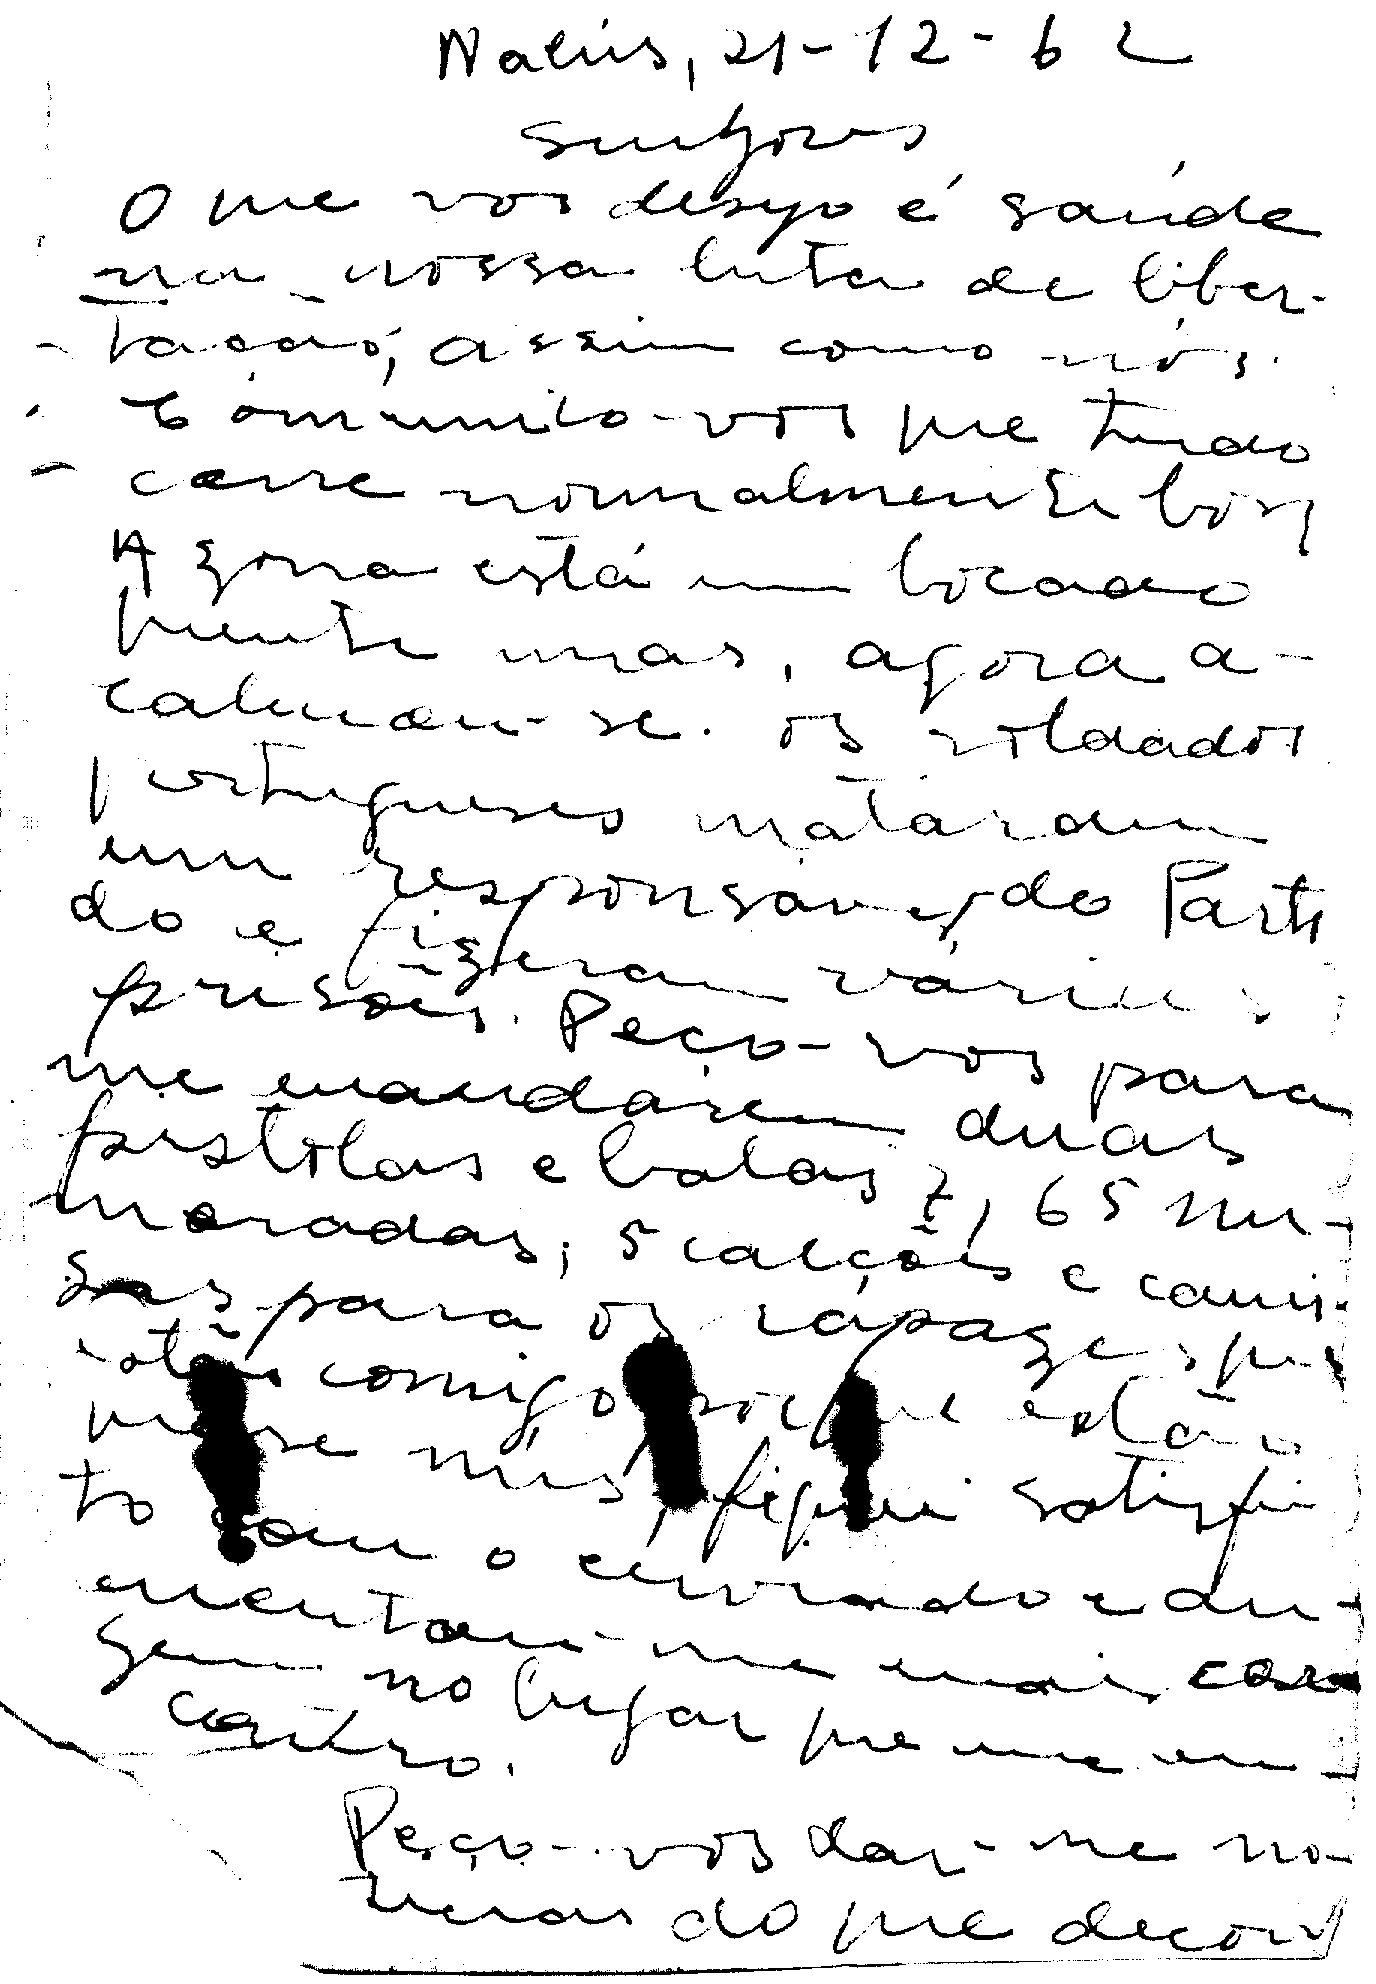 Nalús, 21-12-62
Senhores
O que vos desejo é saúde
na nossa luta de liber-
tação, assim como nós.
Comunico-vos que tudo
corre normalmente bom,
A zona está um bocado
quente mas, agora a-
calmou-se. Os soldados
portugueses mataram
um responsavel do Parti
do e fizeram várias
prisões. Peço-vos para
me mandarem duas
pistolas e balas 7,65 nu-
meradas, 5 calções e cami-
sas para os rapazes que
estão comigo porque estão
quase nús, fiquei satisfei
to com o enviado e au-
mentou-me mais cora
gem no lugar que me en-
contro.
Peço-vos dar-me no-
ticias do que decorr